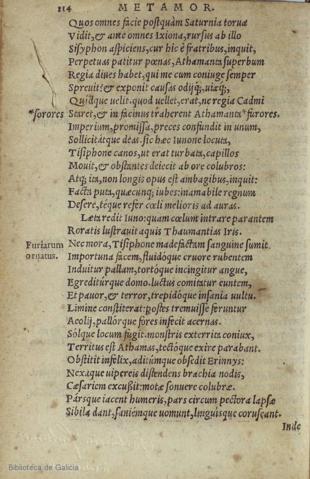 114 METAMOR.
Quos omnes acie postquàm Saturnia torua
Vidit, & ante omnes Ixiona, rursus ab illo
Sisyphon aspiciens, cur hic è fratribus, inquit,
Perpetuas patitur pœnas, Athamanta superbum
Regia diues habet, qui me cum coniuge semper
Spreuit? & exponit causas odijq́;, uiæq́;,
Quidque uelit. quod uellet, erat, ne regia Cadmi
*sorores Staret, & in facinus traherent Athamanta *furores.
Imperium, promissa, preces confundit in unum,
Sollicitátque deas. sic hæc Iunone locuta,
Tisiphone canos, ut erat turbata, capillos
Mouit, & obstantes deiecit ab ore colubros:
Atq; ita, non longis opus est ambagibus, inquit:
Facta puta, quæcunq; iubes: inamabile regnum
Desere, téque refer cœli melioris ad auras.
Læta redit Iuno: quam cœlum intrare parantem
Roratis lustrauit aquis Thaumantias Iris.
Furiarum Nec mora, Tisiphone madefactam sanguine sumit
ornatus. Importuna facem, fluidóque cruore rubentem
Induitur pallam, tortóque incingitur angue,
Egreditúrque domo. luctus comitatur euntem,
Et pauor, & terror, trepidóque insania uultu.
Limine constiterat: postes tremuisse feruntur
Aeolij, pallórque fores infecit acernas.
Sólque locum fugit. monstris exterrita coniux,
Territus est Athamas, tectóque exire parabant.
Obstitit infelix, aditúmque obsedit Erinnys:
Nexáque uipereis distendens brachia nodis,
Cæsariem excussit: motæ sonuere colubræ.
Pársque iacent humeris, pars circum pectora lapsæ
Sibila dant, saniémque uomunt, linguisque coruscant.
Inde
Biblioteca de Galicia